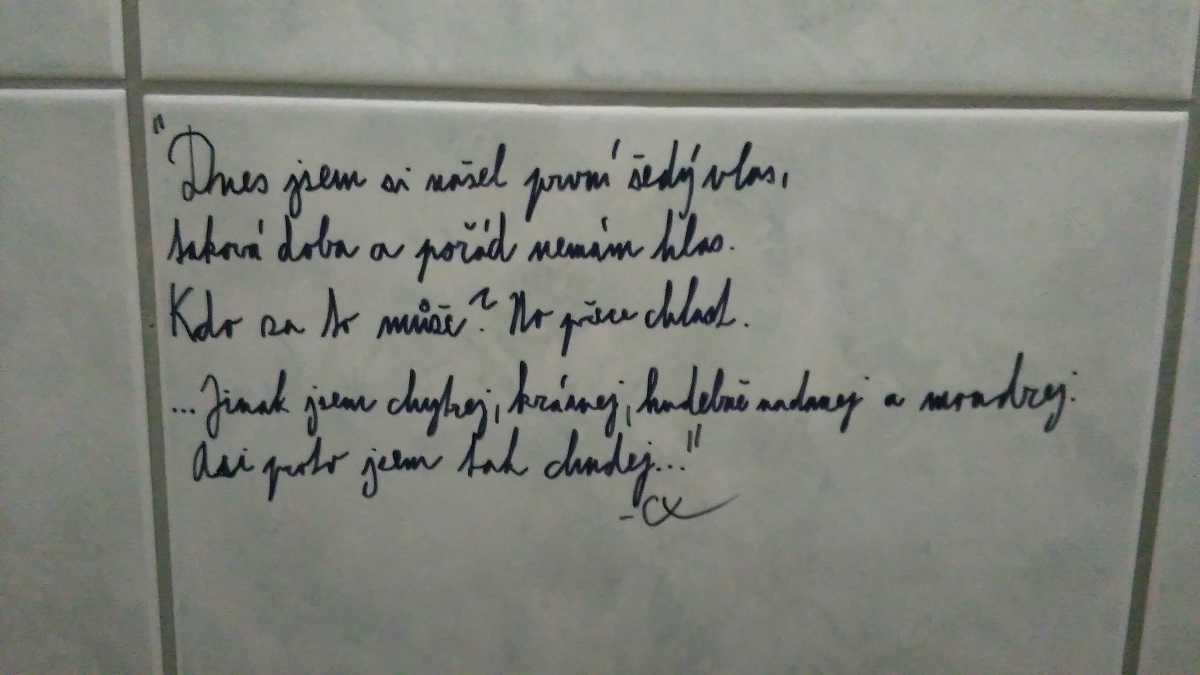 "Dnes jsem si našel první šedý vlas,
taková doba a pořád nemám hlas.
Kdo za to může? No přece chlast.
...Jinak jsem chytrej, krásnej, hudebně nadanej a moudrej.
Asi proto jsem tak chudej..."